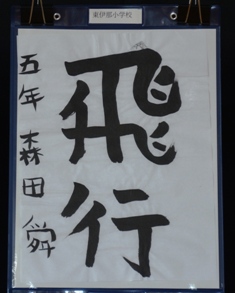 東伊振小学校
飛行
五年 森田 舜